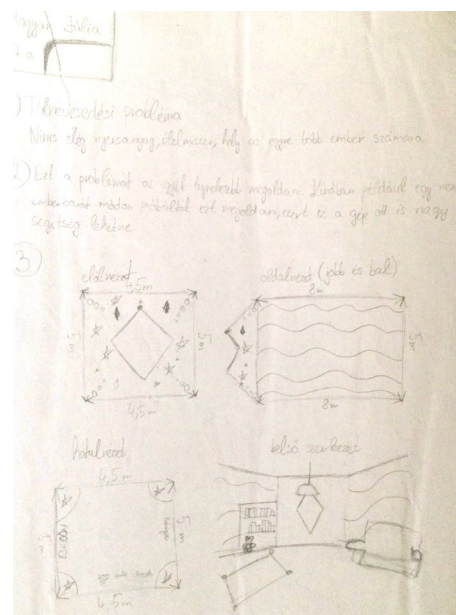 Magyar Júlia
7.a
1) Túlnépesedési probléma
Nincs elég nyersanyag, élelmiszer, hely az egyre több ember számára
2) Ezt a problémát az egyik legnehezebb megoldani. Kínában például egy nem
emberbarát módon próbálták ezt megoldani, ezért ez a gép ott is nagy
segítség lehetne
3
elölnézet
4,5m
5m
5m
4,5m
oldalnézet (jobb és bal)
8m
5m
8m
hátulnézet
4,5m
5m
5m
4,5m
belső szerkezet